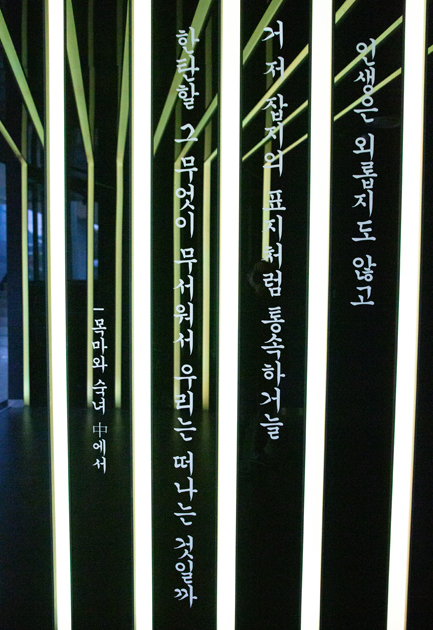 인생은 외롭지도 않고
거저 잡지의 표지처럼 통속하거늘
한탄할 그 무엇이 무서워서 우리는 떠나는 것일까
-목마와 숙녀 中에서